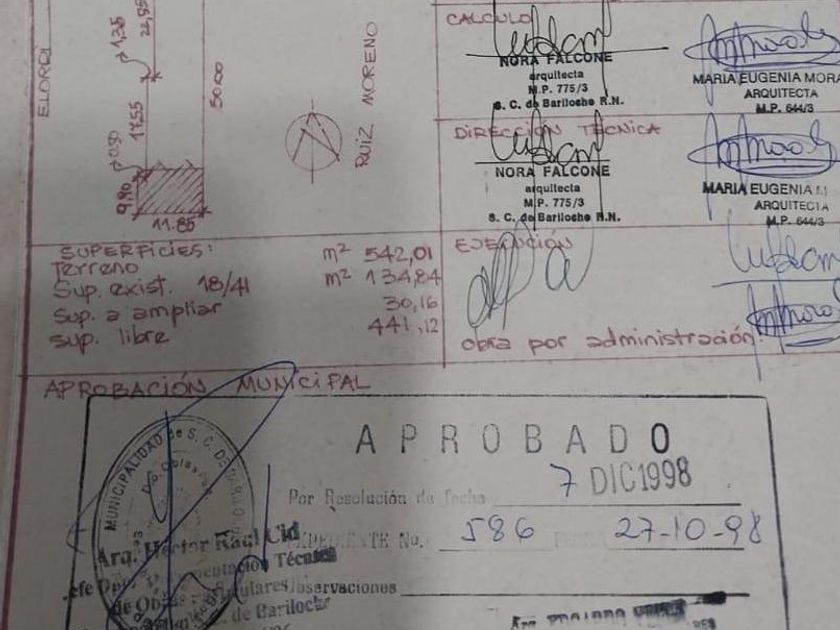 ELORDI
1,35
22,55
17,55
0,50
9,90
11.85
5000
RUIZ MORENO
CALCULO
NORA FALCONE
arquitecta
M.P. 775/3
S. C. de Bariloche R.N.
MARIA EUGENIA MORA
ARQUITECTA
M.P. 644/3
DIRECCIÓN TECNICA
NORA FALCONE
arquitecta
M.P. 775/3
S. C. de Bariloche R.N.
MARIA EUGENIA M
ARQUITECTA
M.P. 644/3
SUPERFICIES:
Terreno m² 542,01
Sup. exist. 18/41 m² 134,84
Sup. a ampliar 30,16
Sup. libre 441,12
EJECUCIÓN
obra por administración.
APROBACIÓN MUNICIPAL
MUNICIPALIDAD de S. C. DE BARILO
APROBADO
Por Resolución de fecha 7 DIC 1998
EXPEDIENTE No. 586 27-10-98
Arq. Héctor Raúl Cid
Técnica
Observaciones
de Bariloche